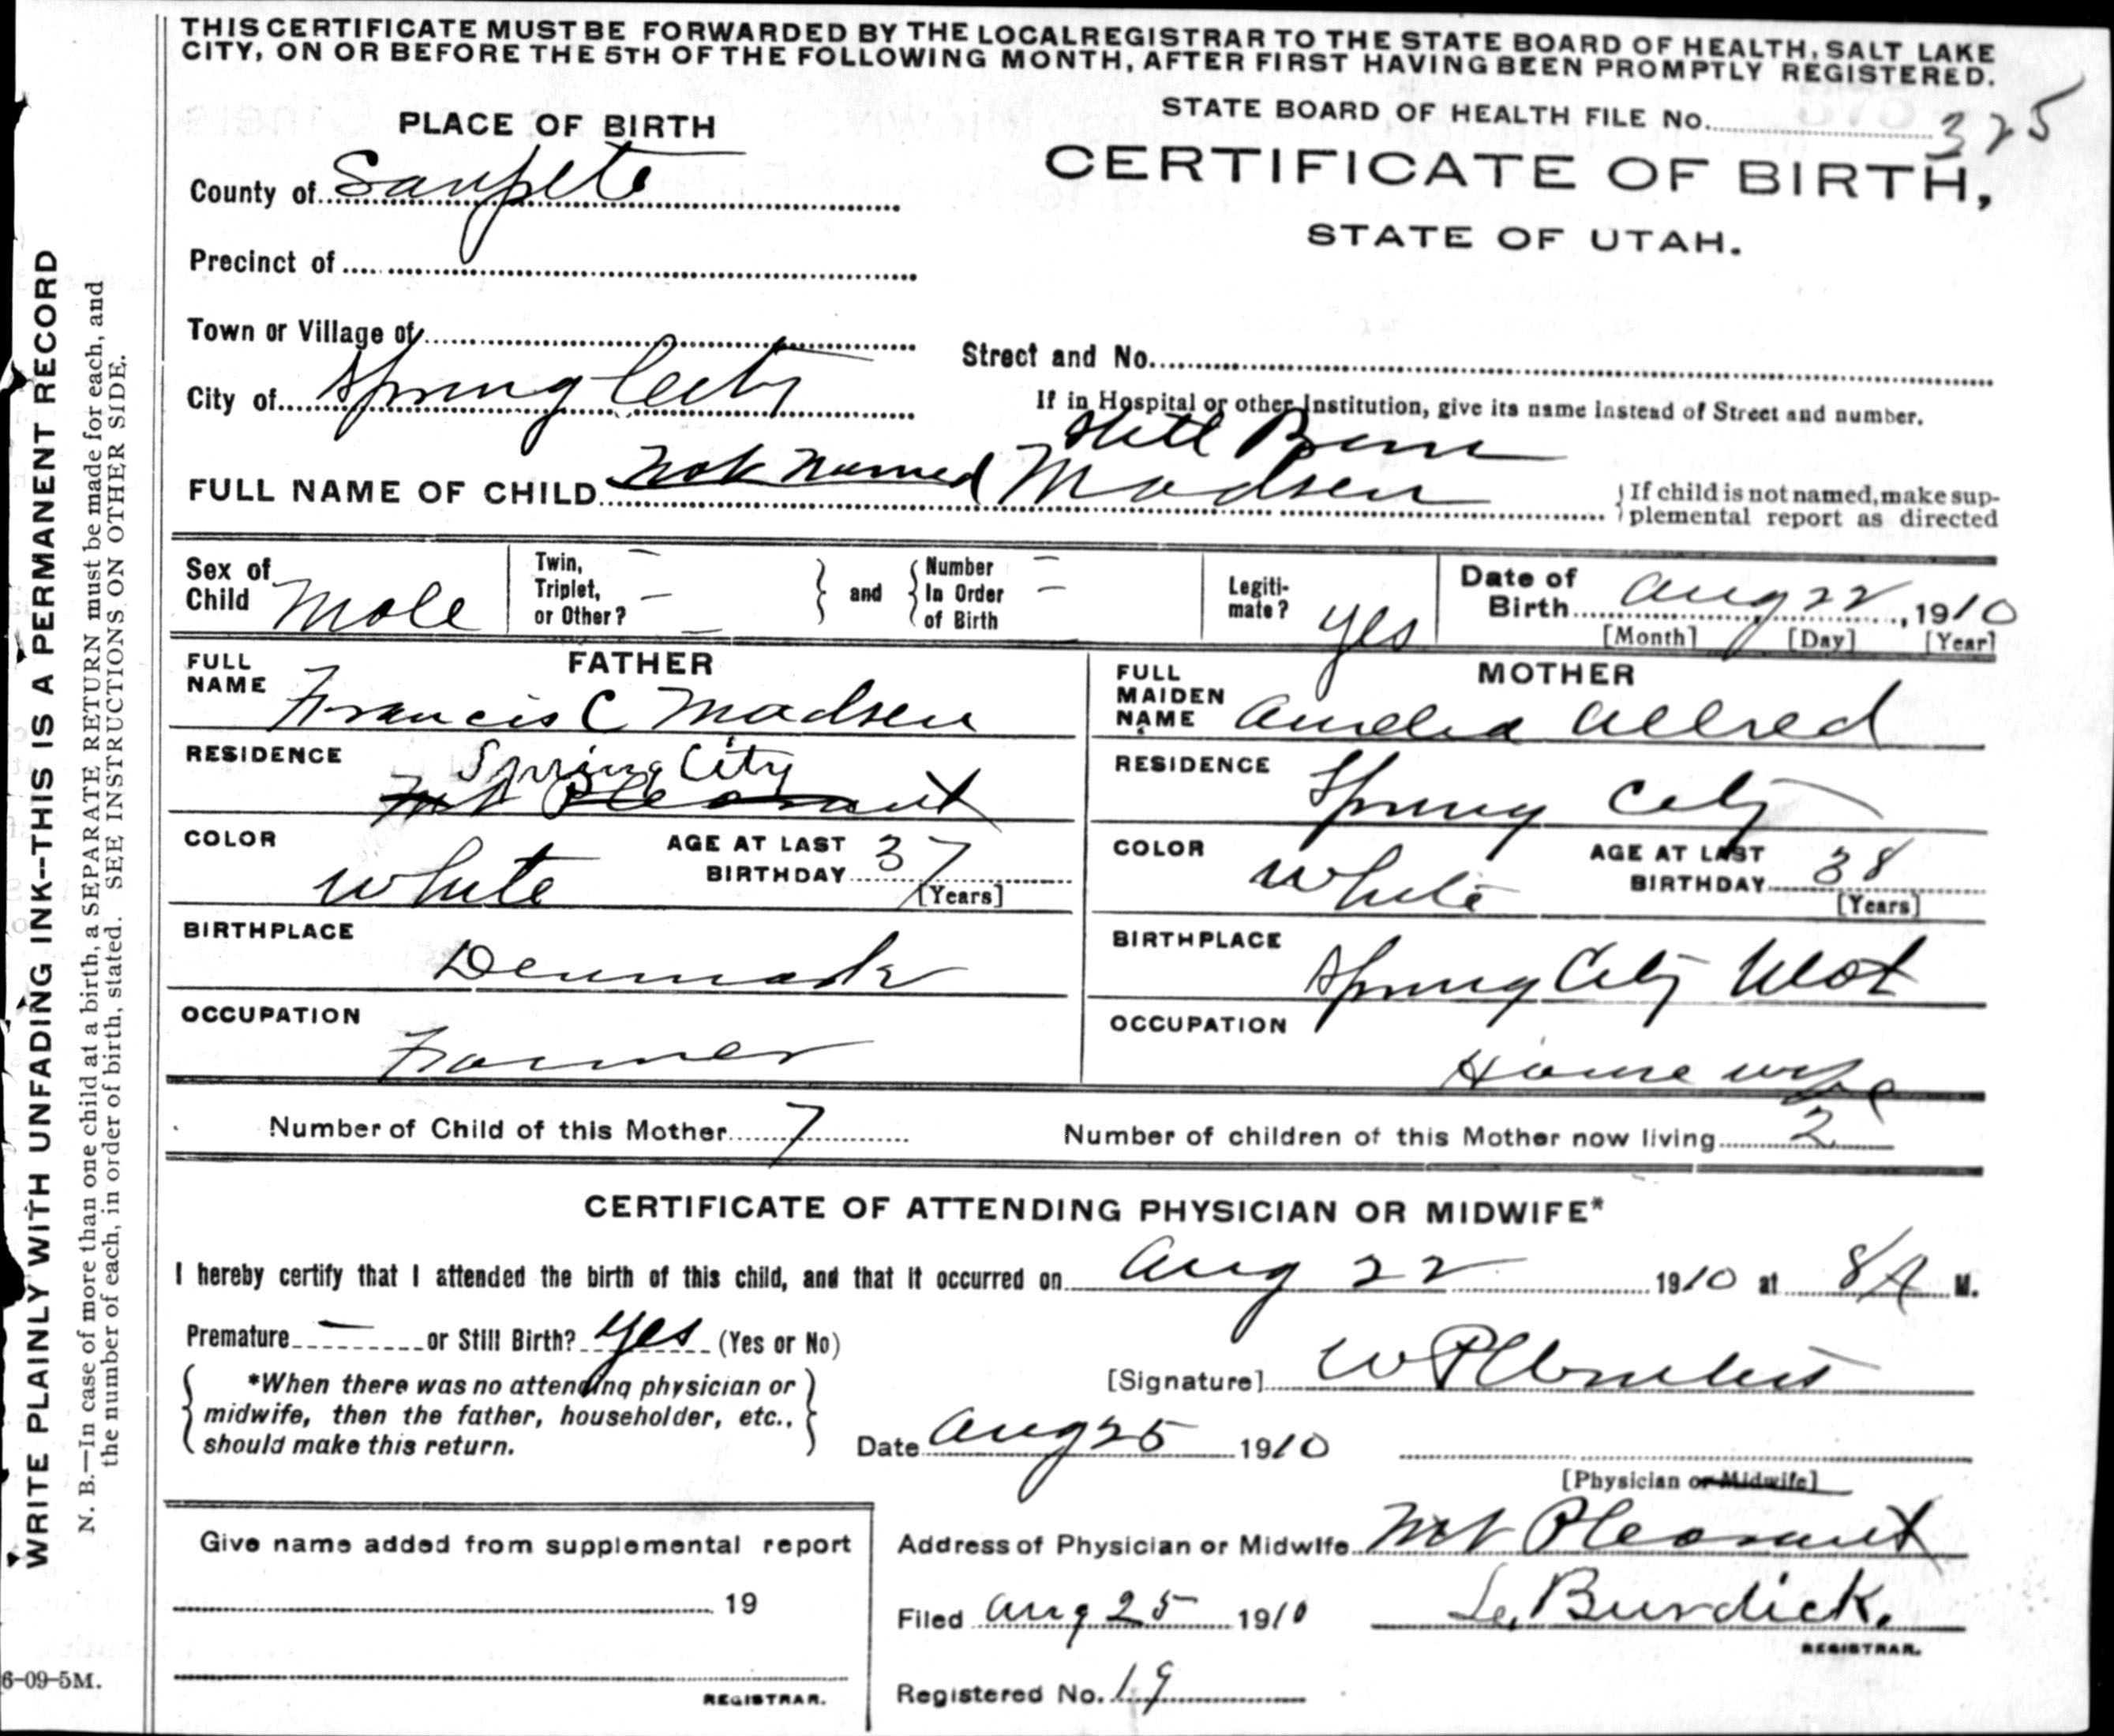 THIS CERTIFICATE MUST BE FORWARDED BY THE LOCAL REGISTRAR TO THE STATE BOARD OF HEALTH, SALT LAKE
CITY, ON OR BEFORE THE 5TH OF THE FOLLOWING MONTH, AFTER FIRST HAVING BEEN PROMPTLY REGISTERED.
STATE BOARD OF HEALTH FILE No. 325
PLACE OF BIRTH
CERTIFICATE OF BIRTH,
STATE OF UTAH.
County of Sanpete
Precinct of
Town or Village of
Street and No.
City of Spring City
If in Hospital or other Institution, give its name instead of Street and number.
Still Born
FULL NAME OF CHILD Not named Madsen
If child is not named, make sup-
plemental report as directed
Sex of Child Male
Twin, Triplet, or Other? – – –
and
Number In Order of Birth – –
Legiti-mate? yes
Date of Birth Aug 22, 1910
[Month] [Day] [Year]
FATHER
FULL NAME Francis C Madsen
RESIDENCE Spring City
Mt Pleasant
COLOR White
AGE AT LAST BIRTHDAY 37
[Years]
BIRTHPLACE Denmark
OCCUPATION Farmer
MOTHER
FULL MAIDEN NAME Amelia Allred
RESIDENCE Spring City
COLOR White
AGE AT LAST BIRTHDAY 38
[Years]
BIRTHPLACE Spring City Utah
OCCUPATION House wife
Number of Child of this Mother 7
Number of children of this Mother now living 2
CERTIFICATE OF ATTENDING PHYSICIAN OR MIDWIFE*
I hereby certify that I attended the birth of this child, and that it occurred on Aug 22 1910 at 8 A M.
Premature – or Still Birth? Yes (Yes or No)
*When there was no attending physician or
midwife, then the father, householder, etc.,
should make this return.
[Signature] W P
Date Aug 25 1910
[Physician or Midwife]
Address of Physician or Midwife Mt Pleasant
Give name added from supplemental report
19
REGISTRAR.
Filed Aug 25 1910
Burdick.
REGISTRAR.
Registered No. 19
6-09-5M.
WRITE PLAINLY WITH UNFADING INK--THIS IS A PERMANENT RECORD
N. B.—In case of more than one child at a birth, a SEPARATE RETURN must be made for each, and
the number of each, in order of birth, stated. SEE INSTRUCTIONS ON OTHER SIDE.